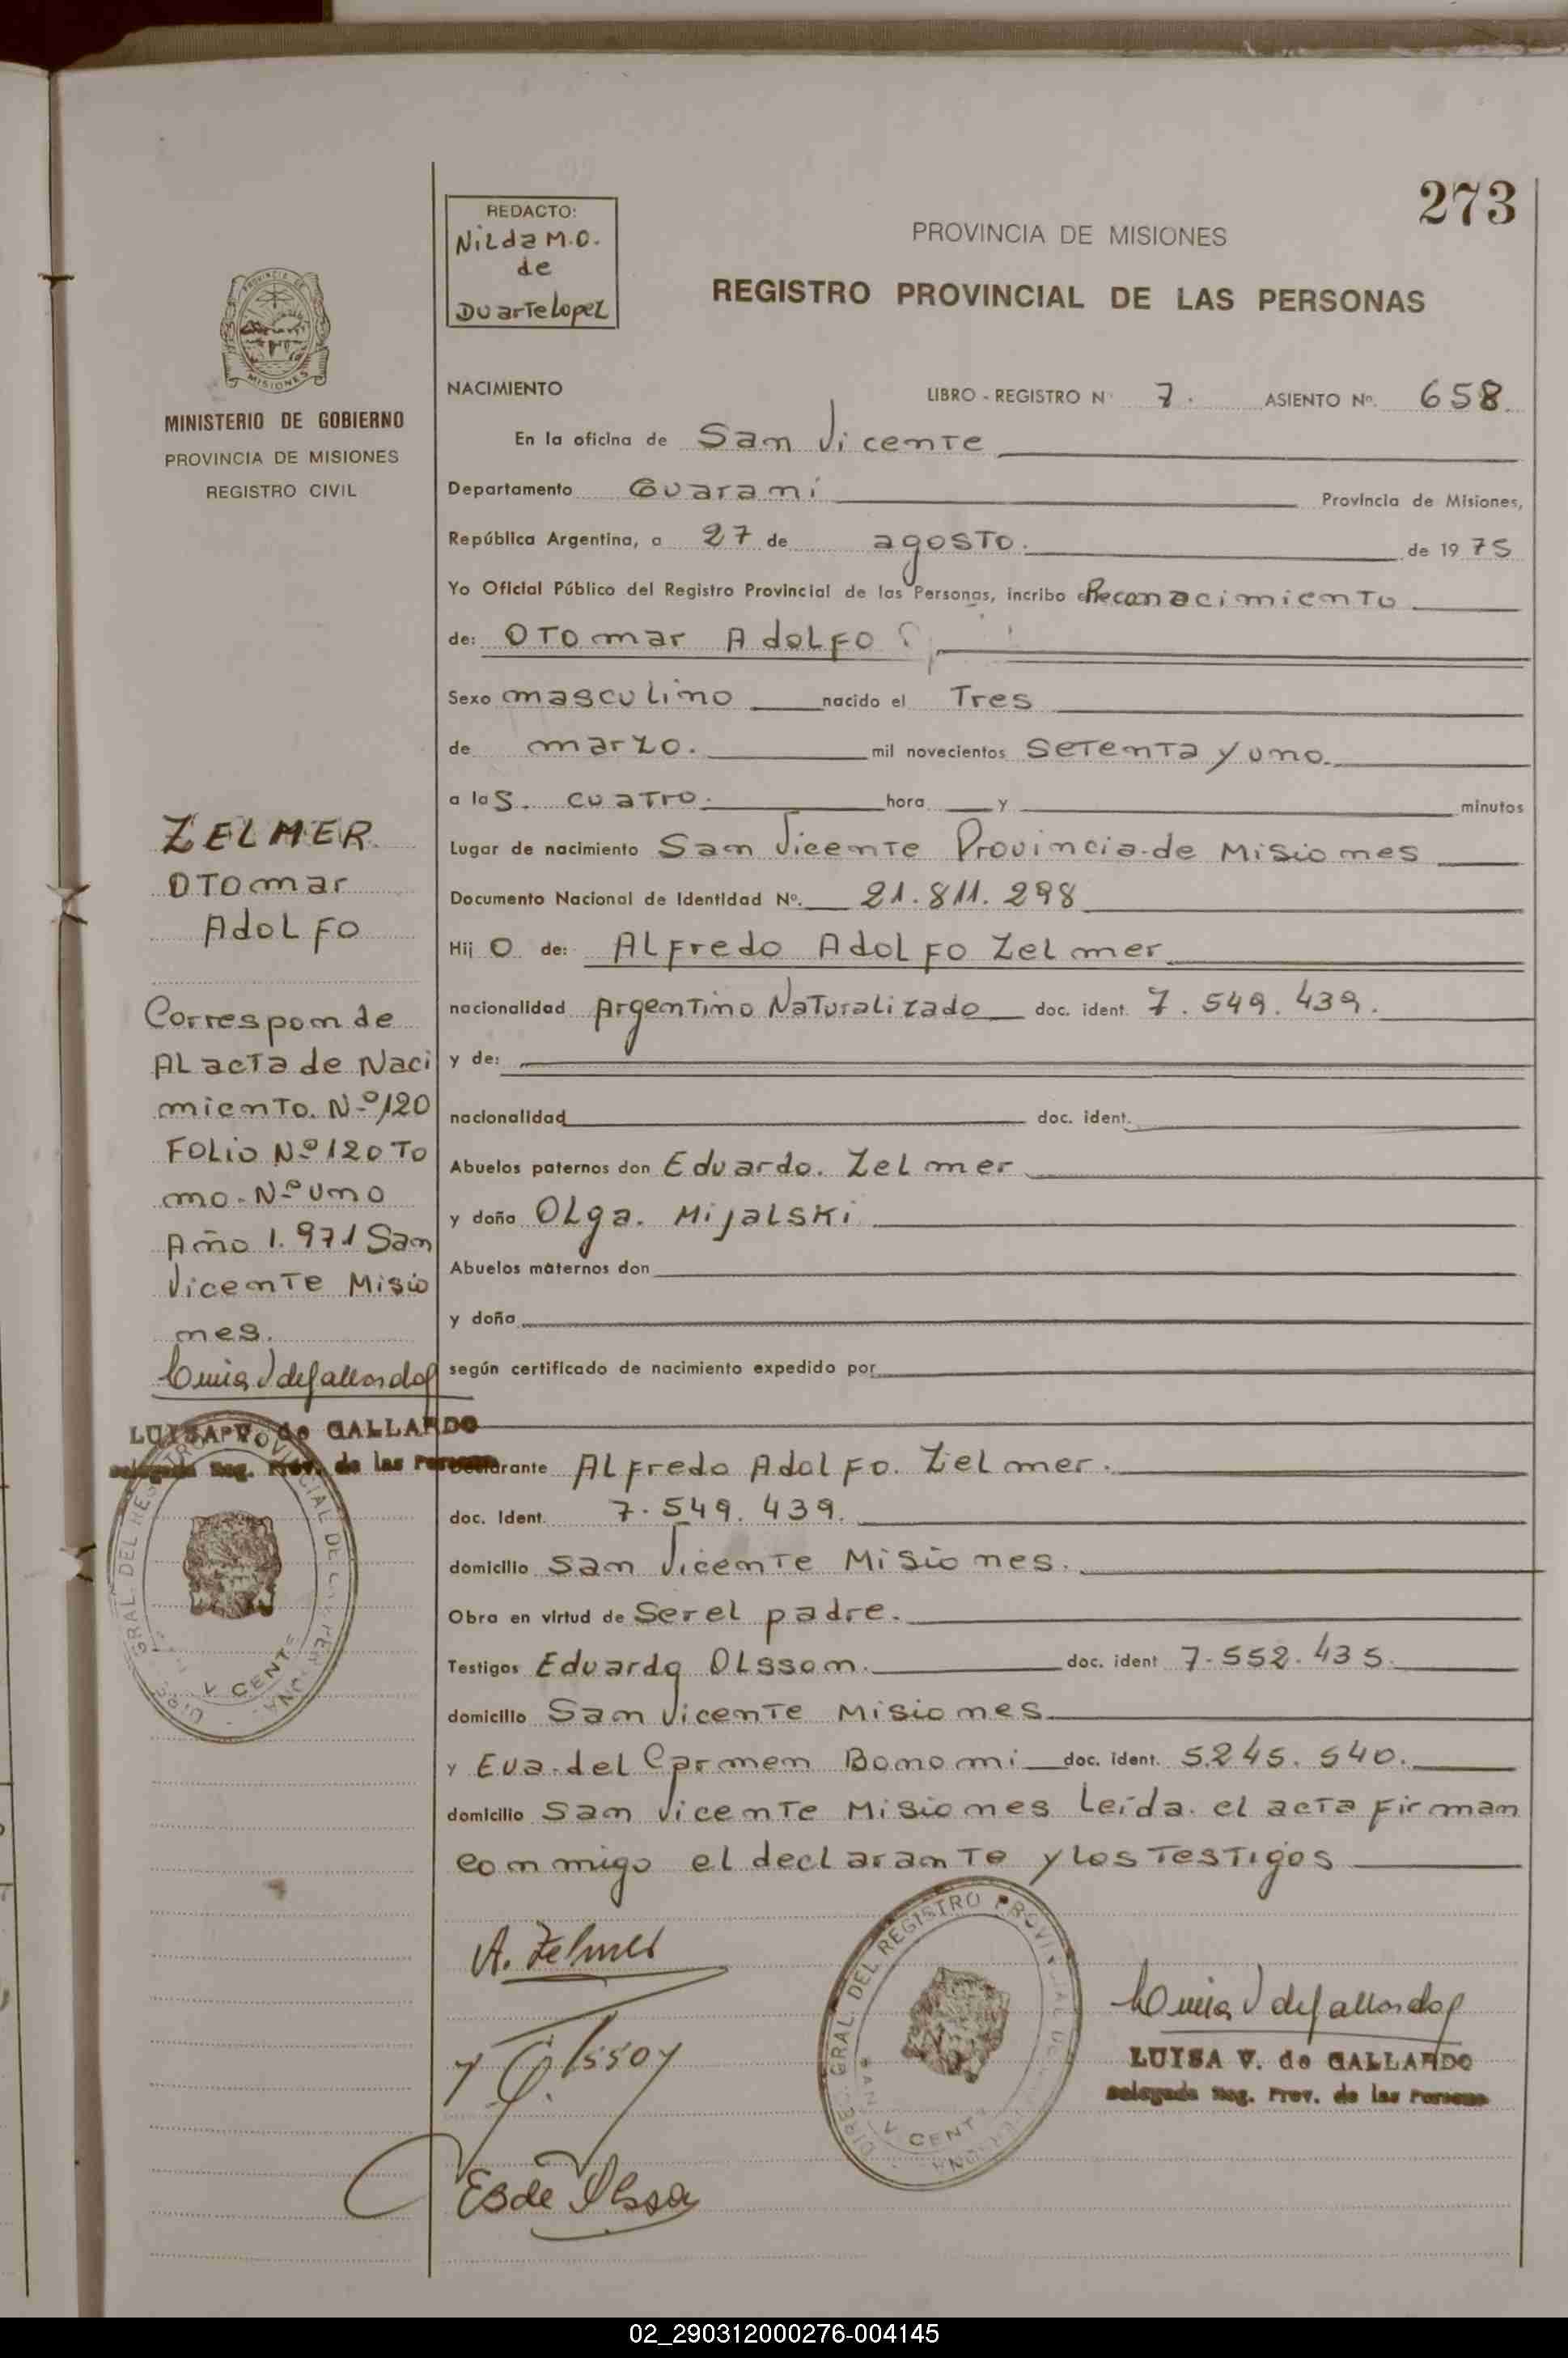 273
REDACTO:
Nilda M.O.
de
Duarte Lopez
PROVINCIA DE MISIONES
REGISTRO PROVINCIAL DE LAS PERSONAS
MINISTERIO DE GOBIERNO
PROVINCIA DE MISIONES
REGISTRO CIVIL
NACIMIENTO LIBRO - REGISTRO Nº 7. ASIENTO Nº. 658
En la oficina de San Vicente
Departamento Guaraní Provincia de Misiones,
República Argentina, a 27 de agosto. de 1975
Yo Oficial Público del Registro Provincial de las Personas, incribo el Reconocimiento
de: Otomar Adolfo
Sexo masculino nacido el Tres
de marzo. mil novecientos setenta y uno.
a las. cuatro. hora y minutos
Lugar de nacimiento San Vicente Provincia de Misiones
Documento Nacional de Identidad Nº. 21.811.298
Hijo de: Alfredo Adolfo Zelmer
nacionalidad Argentino Naturalizado doc. ident. 7.549.439.
y de:
nacionalidad doc. ident.
Abuelos paternos don Eduardo. Zelmer
y doña Olga. Mijalski
Abuelos maternos don
y doña
según certificado de nacimiento expedido por
Declarante Alfredo Adolfo. Zelmer.
doc. Ident. 7.549.439.
domicilio San Vicente Misiones.
Obra en virtud de Ser el padre.
Testigos Eduardo Olsson. doc. ident 7.552.435.
domicilio San Vicente Misiones
y Eva del Carmen Bonomi doc. ident. 5.245.540.
domicilio San Vicente Misiones Leída el acta firman
conmigo el declarante y los testigos
ZELMER
Otomar
Adolfo
Corresponde
Al acta de Naci
miento. Nº 120
Folio Nº 120 To
mo. Nº uno
Año 1.971 San
Vicente Misio
nes.
Luisa V de Gallardo
LUISA V. de GALLARDO
Delegada Reg. Prov. de las Personas
A. Zelmer
Olsson
EB de Olsson
DIREC. GRAL. DEL REGISTRO PROVINCIAL DE LAS PERSONAS
SAN VICENTE
Luisa V de Gallardo
LUISA V. de GALLARDO
Delegada Reg. Prov. de las Personas
02_290312000276-004145